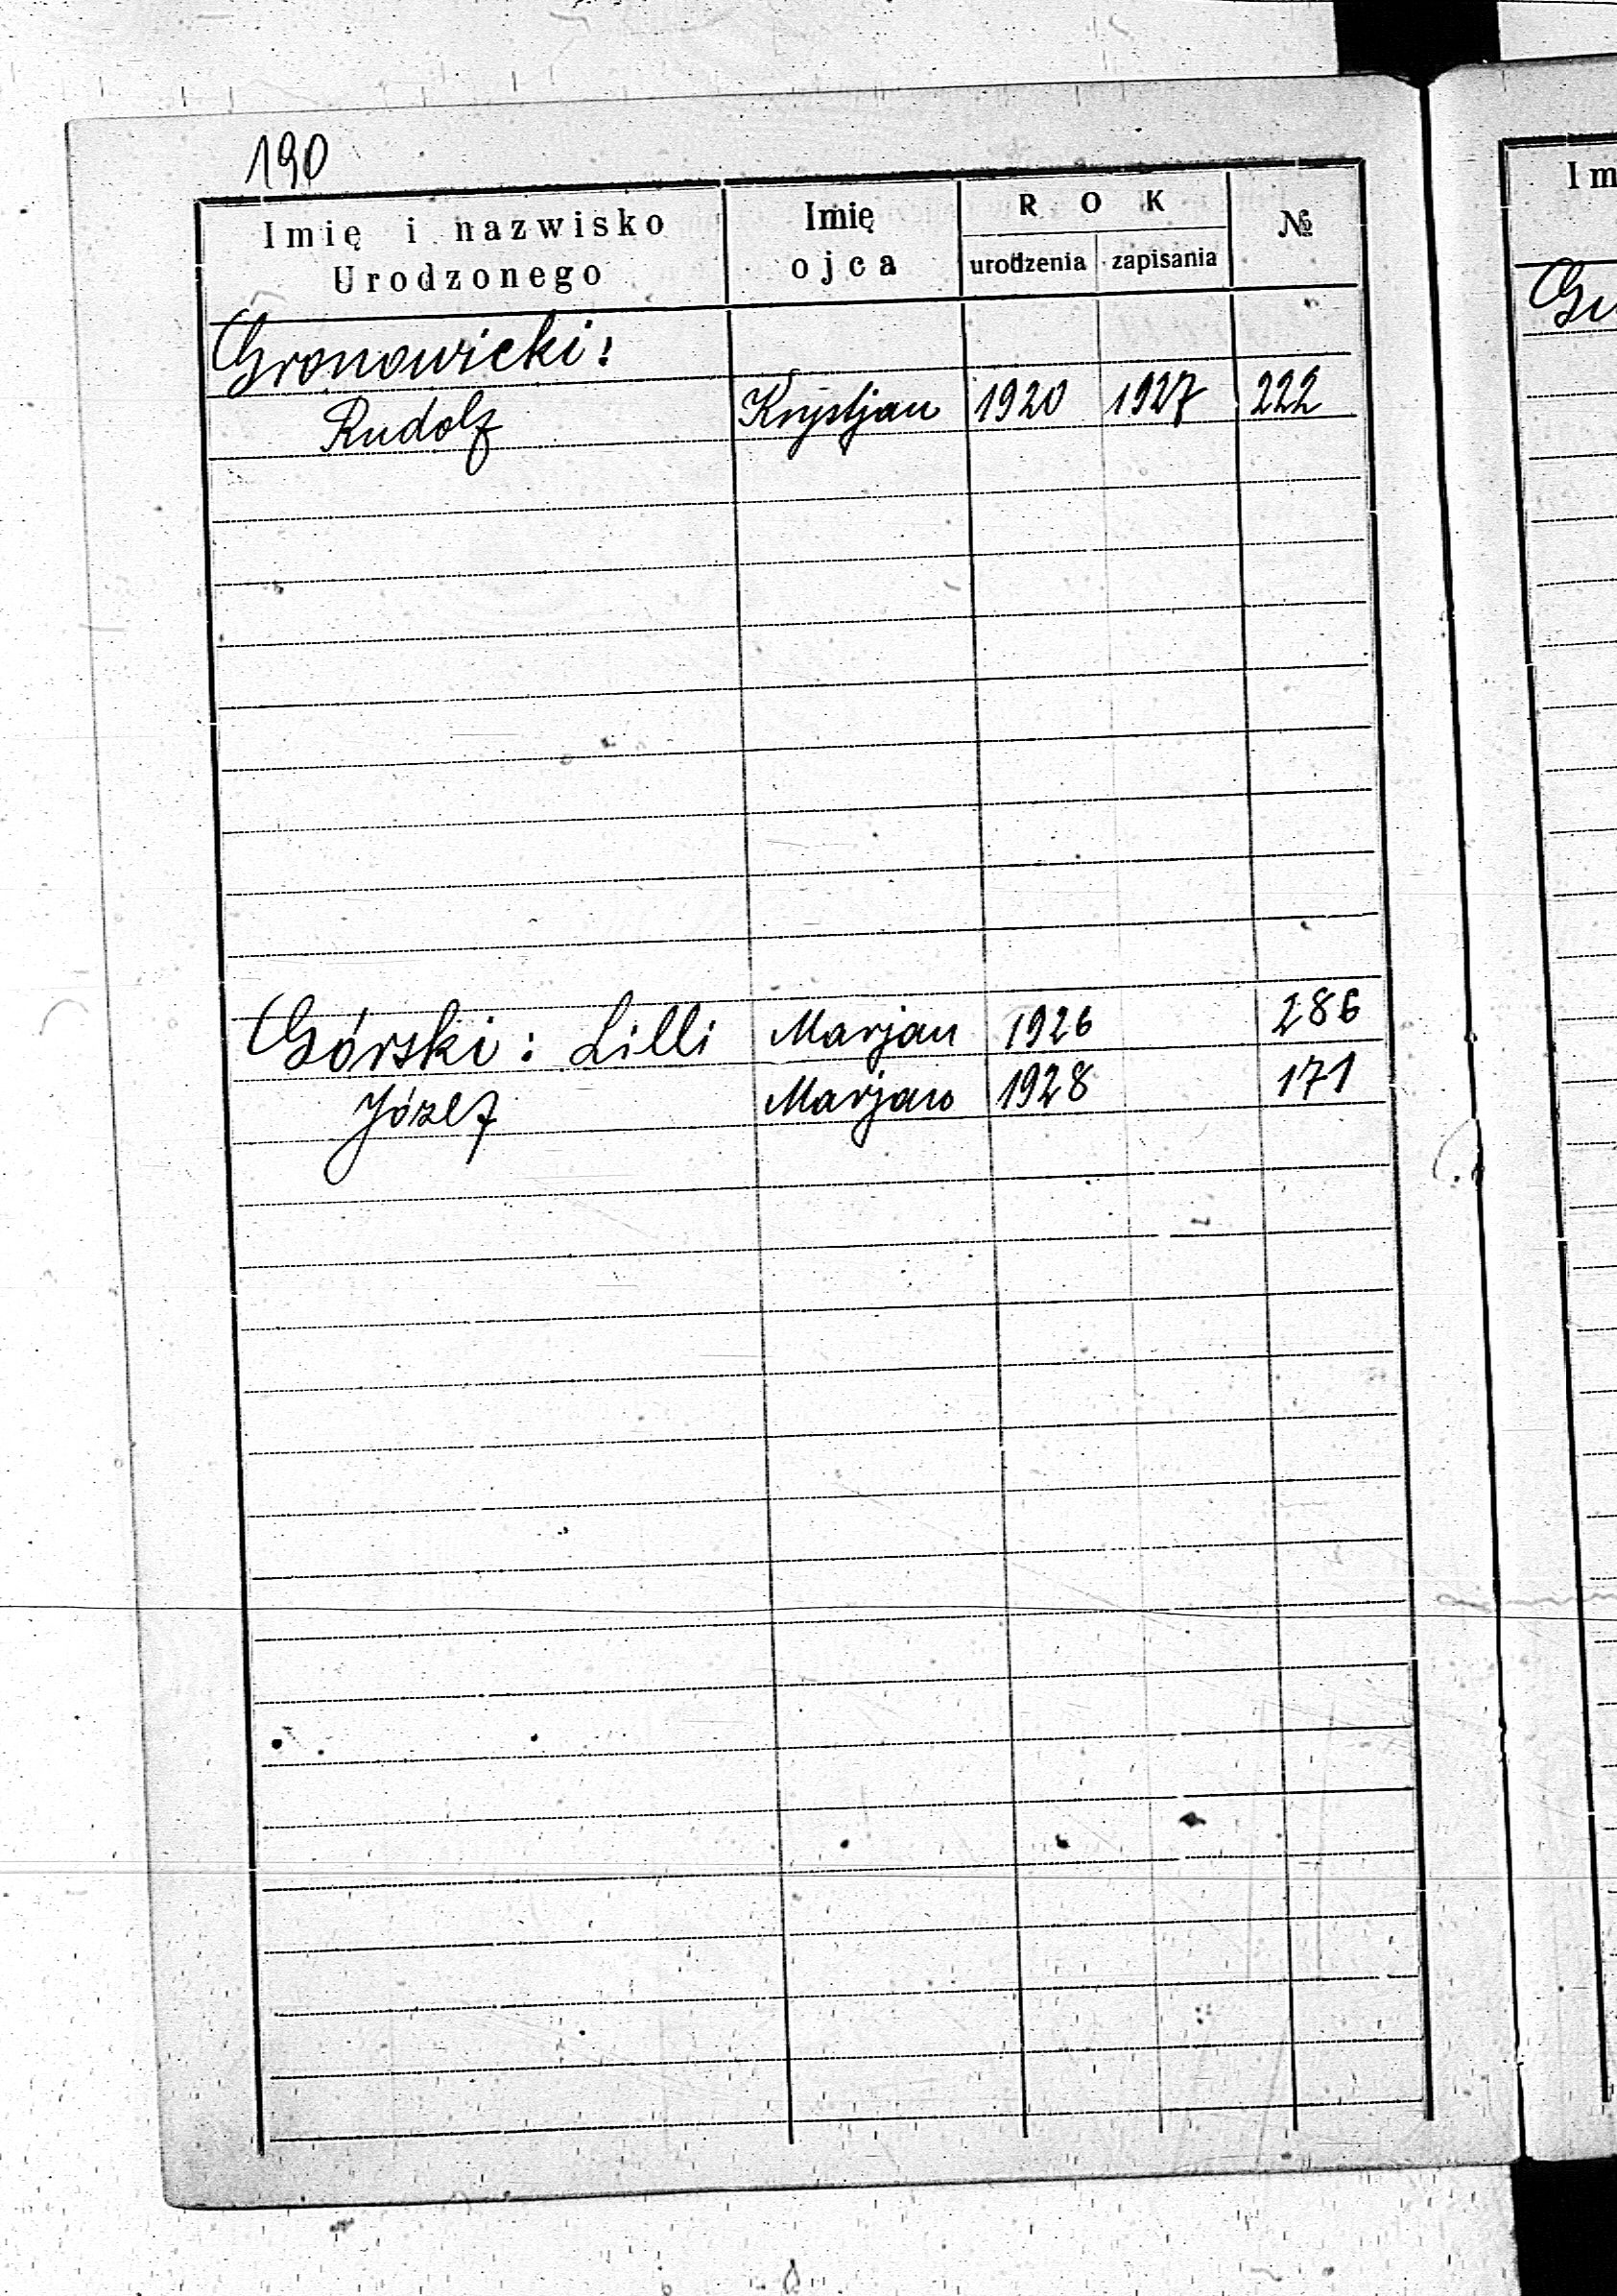 190
Imię i nazwisko Urodzonego Imię ojca ROK urodzenia zapisania №
Gronowicki:
Rudolf Krystjan 1920 1927 222
Górski: Lilli Marjan 1926 286
Józef Marjan 1928 171
Im
Gu